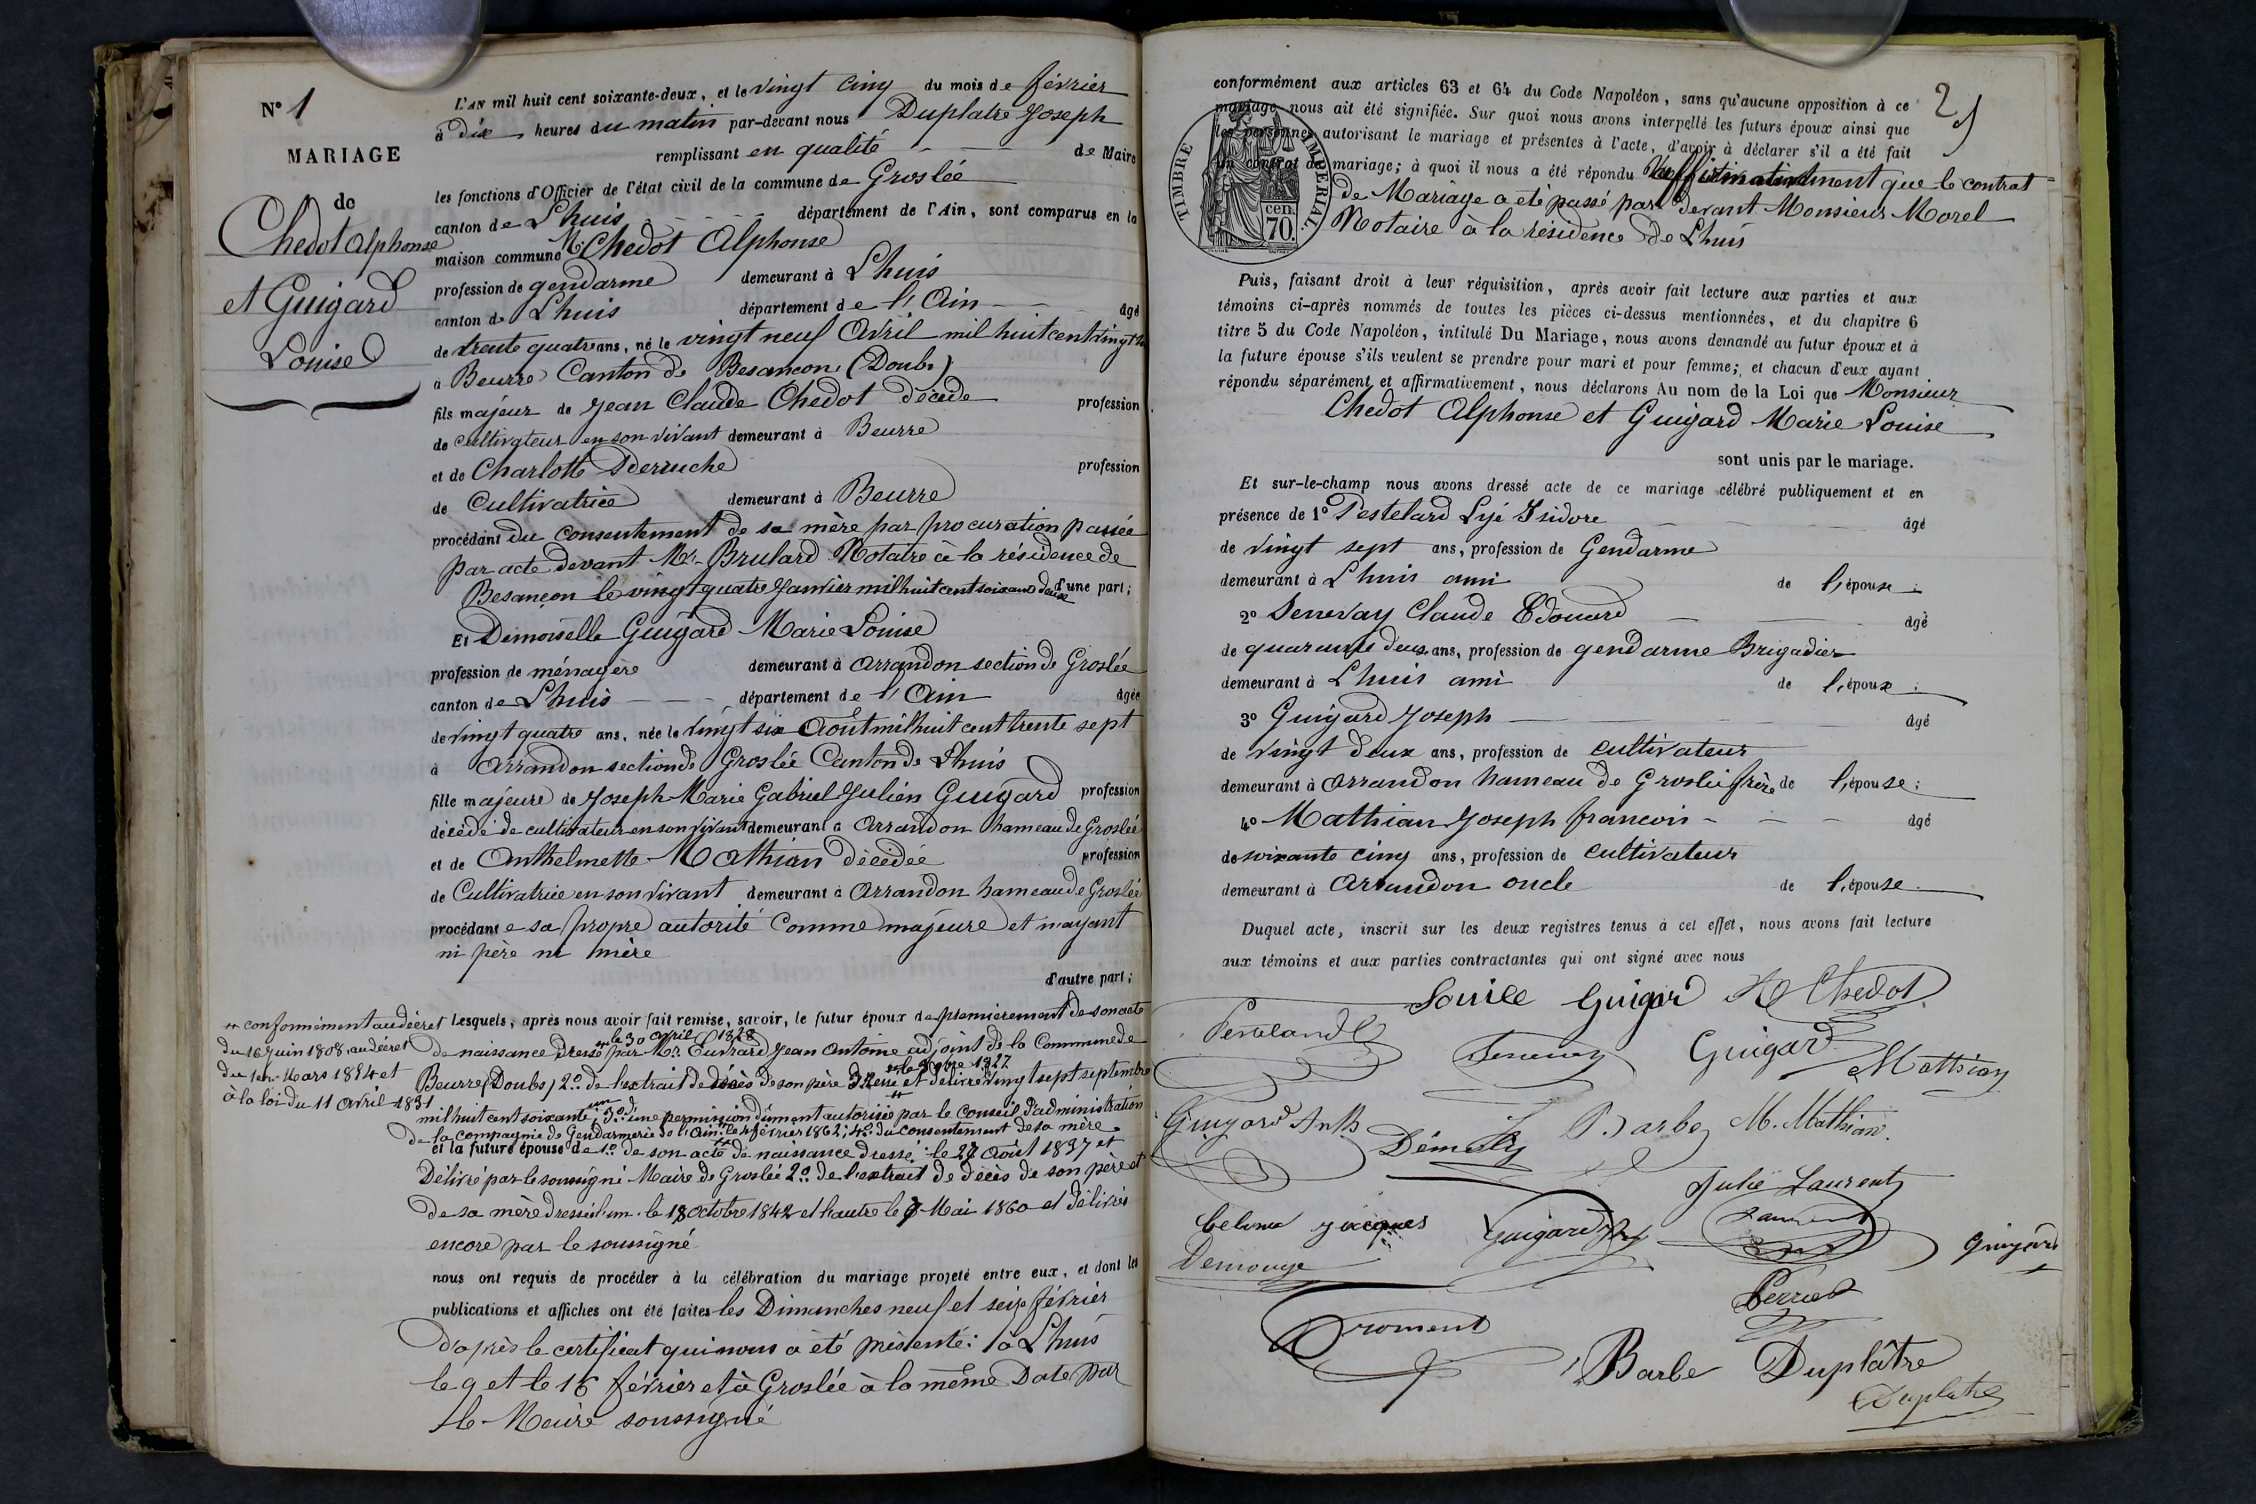 N° 1
MARIAGE
de
Chedot Alphonse
et Guigard
Louise
L'AN mil huit cent soixante-deux, et le vingt cinq du mois de février
à dix heures du matin par-devant nous Duplatre Joseph
remplissant en qualité de Maire
les fonctions d'Officier de l'état civil de la commune de Groslée
canton de Lhuis département de l'Ain, sont comparus en la
maison commune Mr Chedot Alphonse
profession de gendarme demeurant à Lhuis
canton de Lhuis département de l'Ain âgé
de trente quatre ans, né le vingt neuf Avril mil huit cent vingt h
à Beurre Canton de Besancon (Doubs)
fils majeur de Jean Claude Chedot décédé profession
de cultivateur en son vivant demeurant à Beurre
et de Charlotte Deruche profession
de Cultivatrice demeurant à Beurre
procédant du consentement de sa mère par procuration passée
par acte devant Me Brulard Notaire à la résidence de
Besançon le vingt quatre Janvier mil huit cent soixante deux d'une part;
Et Demoiselle Guigard Marie Louise
profession de ménagère demeurant à Arrandon section de Groslée
canton de Lhuis département de l'Ain âgée
de vingt quatre ans, née le vingt six Août mil huit cent trente sept
à Arrandon section de Groslée Canton de Lhuis
fille majeure de Joseph Marie Gabriel Julien Guigard profession
décédé de cultivateur en son vivant demeurant à Arrandon hameau de Groslée
et de Anthelmette Mathian décédée profession
de Cultivatrice en son vivant demeurant à Arrandon hameau de Groslée
procédant e sa propre autorité comme majeure et nayant
ni père ni mère
d'autre part;
Lesquels, après nous avoir fait remise, savoir, le futur époux de premièrement de son acte
le 30 avril 1828
de naissance dressé par Mr Jean Antoine adjoint de la Commune de
Beurre (Doubs) 2° de l'extrait de décès de son père et délivré vingt sept septembre
mil huit cent soixante un 3° d'une permission dûment autorisée par le Conseil d'administration
de la compagnie de Gendarmerie de l'Ain le 4 février 1862; 4° du consentement de sa mère
et la future épouse de 1° de son acte de naissance dressé le 27 Août 1837 et
Délivré par le soussigné Maire de Groslée 2° de l'extrait de décès de son père et
de sa mère dressés l'un le 18 octobre 1842 et l'autre le Mai 1860 et délivrés
encore par le soussigné
** conformément au décret
du 16 Juin 1808, au décret
du 1er Mars 1854 et
à la loi du 11 Avril 1831
nous ont requis de procéder à la célébration du mariage projeté entre eux, et dont les
publications et affiches ont été faites les Dimanches neuf et seize février
d'après le certificat qui nous a été présenté: à Lhuis
le 9 et le 16 février et à Groslée à la même Date par
le Maire soussigné
2
conformément aux articles 63 et 64 du Code Napoléon, sans qu'aucune opposition à ce
mariage nous ait été signifiée. Sur quoi nous avons interpellé les futurs époux ainsi que
les personnes autorisant le mariage et présentes à l'acte, d'avoir à déclarer s'il a été fait
un contrat de mariage; à quoi il nous a été répondu affirmativement que le contrat
de Mariage a été passé par devant Monsieur Morel
Notaire à la résidence de Lhuis
TIMBRE IMPÉRIAL.
70 cen.
Puis, faisant droit à leur réquisition, après avoir fait lecture aux parties et aux
témoins ci-après nommés de toutes les pièces ci-dessus mentionnées, et du chapitre 6
titre 5 du Code Napoléon, intitulé Du Mariage, nous avons demandé au futur époux et à
la future épouse s'ils veulent se prendre pour mari et pour femme; et chacun d'eux ayant
répondu séparément et affirmativement, nous déclarons Au nom de la Loi que Monsieur
Chedot Alphonse et Guigard Marie Louise
sont unis par le mariage.
Et sur-le-champ nous avons dressé acte de ce mariage célébré publiquement et en
présence de 1° Pestelard Lyé Isidore âgé
de vingt sept ans, profession de Gendarme
demeurant à Lhuis ami de l'époux;
2° Denevay Claude Edouard âgé
de quarante deux ans, profession de gendarme Brigadier
demeurant à Lhuis ami de l'époux;
3° Guigard Joseph âgé
de vingt deux ans, profession de cultivateur
demeurant à Arrandon hameau de Groslée frère de l'épouse;
4° Mathian Joseph francois âgé
de soixante cinq ans, profession de cultivateur
demeurant à Arrandon oncle de l'épouse
Duquel acte, inscrit sur les deux registres tenus à cet effet, nous avons fait lecture
aux témoins et aux parties contractantes qui ont signé avec nous
Louise Guigard A Chedot
Pestelard
Guigard
Mathian
Guigard Anth
Barbe M. Mathian
Julie Laurent
jacques
Guigard
Laurent
Guigard
Perret
Froment
Barbe Duplâtre
Duplatre